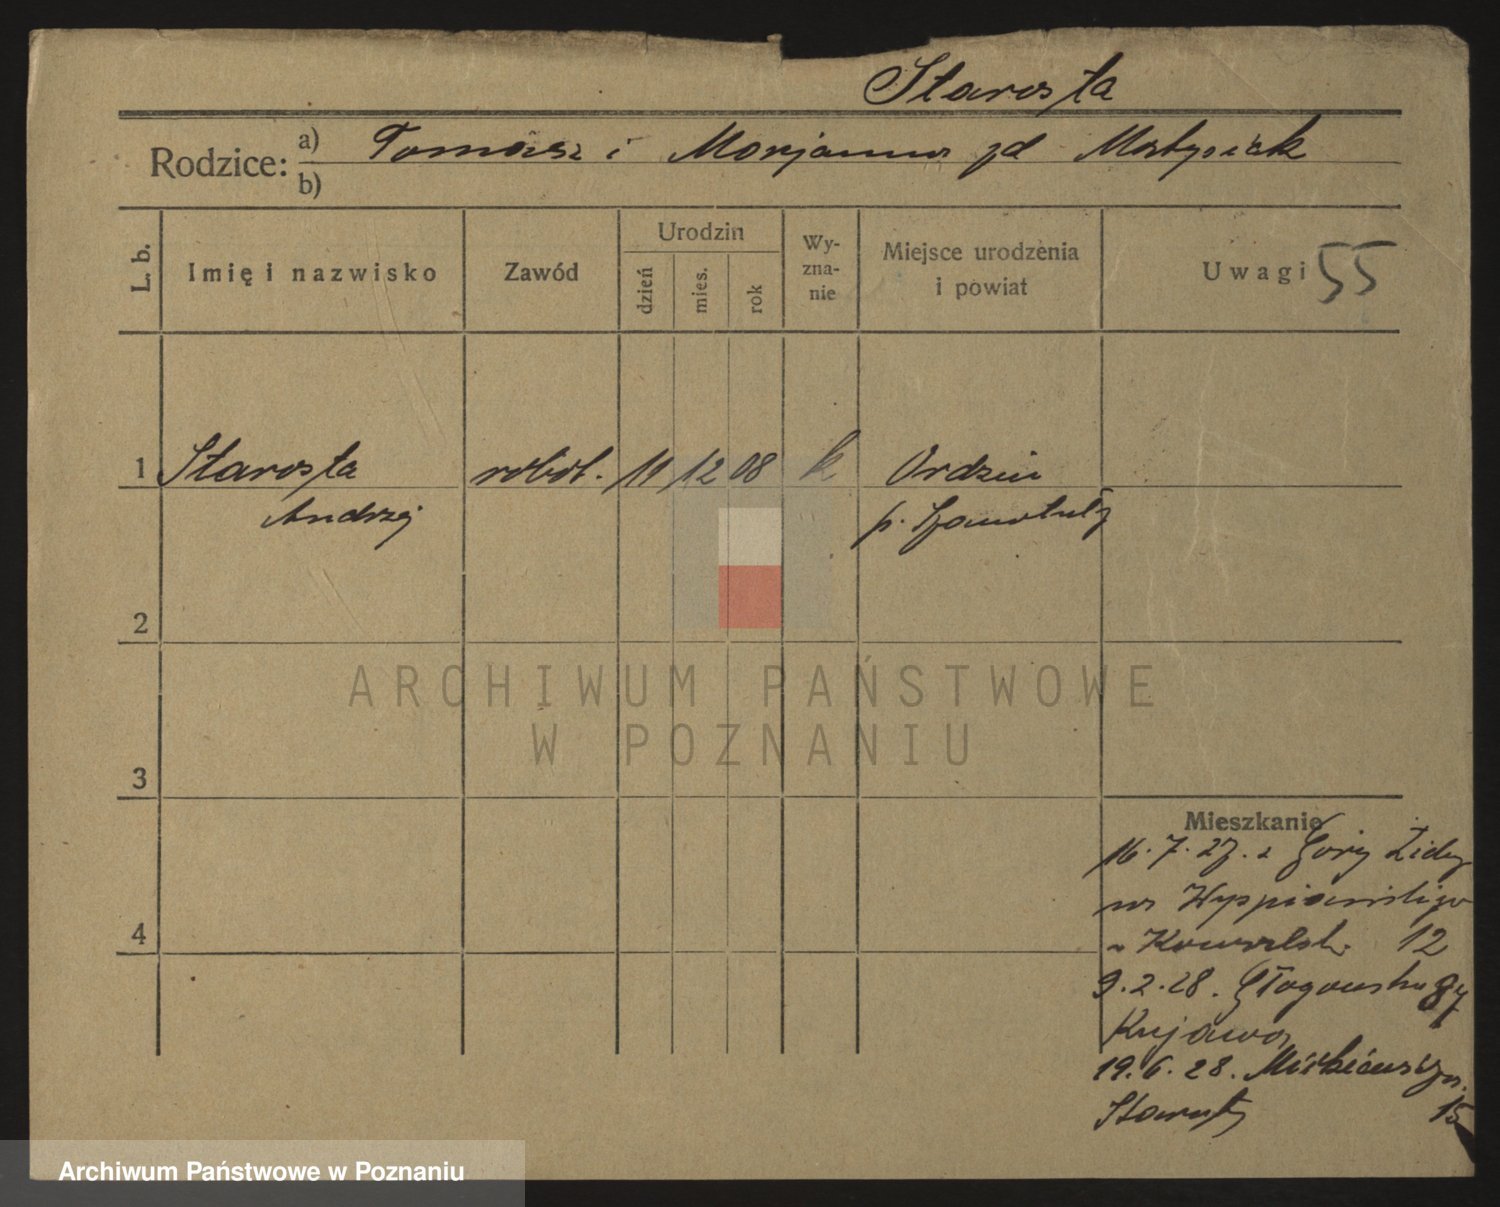 Starosta
Rodzice: a) Tomasz i Marjanna zd Matysiak
b)
L. b. Imię i nazwisko Zawód Urodzin dzień mies. rok Wyznanie Miejsce urodzenia i powiat Uwagi 55
1 Starosta robot. 11 12 08 k Ordzin
Andrzej p. Szamotuły
2
ARCHIWUM PAŃSTWOWE
W POZNANIU
3
Mieszkanie
16.7.27. z Góry
Wyspiańskiego
4
u Kowalsk. 12
9.2.28. Głogowska
Kujawa
19.6.28.
Starosty 15
Archiwum Państwowe w Poznaniu